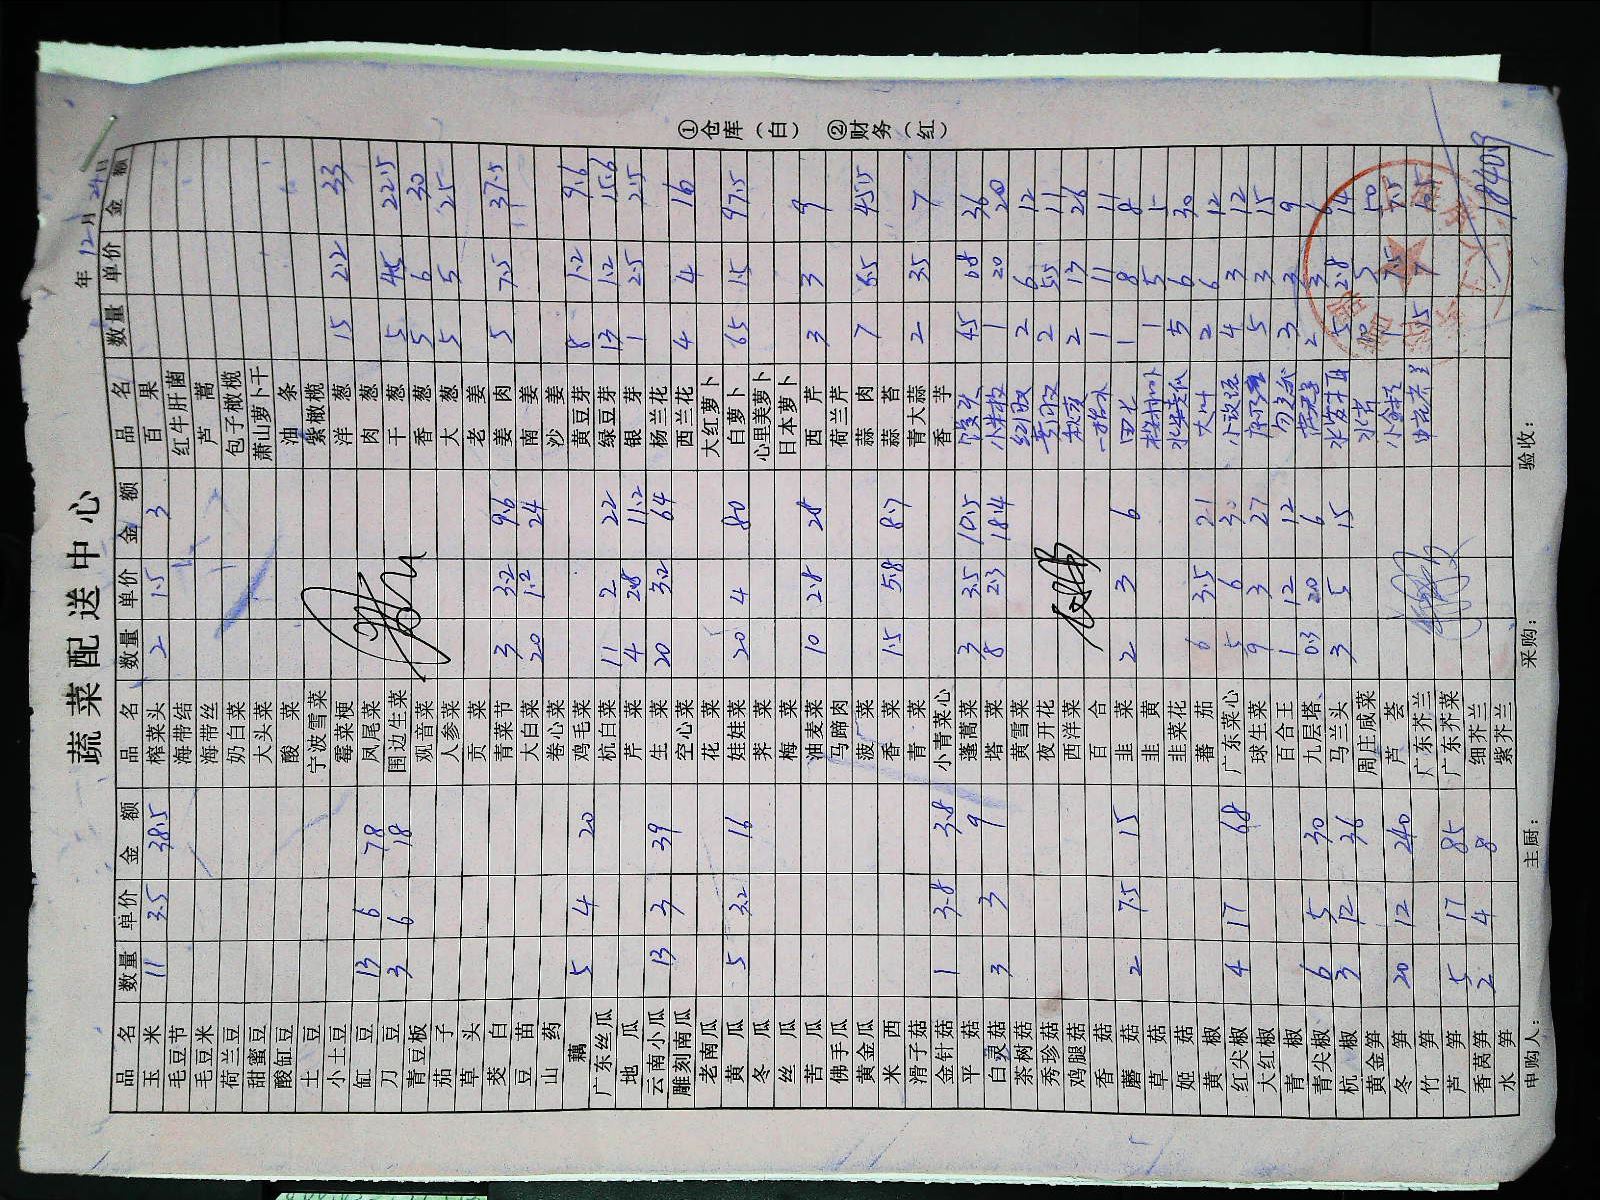 蔬菜配送中心
年 12月 24日
品名 数量 单价 金额 品名 数量 单价 金额 品名 数量 单价 金额
玉米 11 3.5 38.5 榨菜头 2 1.5 3 百果
毛豆节 海带结 红牛肝菌
毛豆米 海带丝 芦蒿
荷兰豆 奶白菜 包子橄榄
甜蜜豆 大头菜 萧山萝卜干
酸缸豆 酸菜 油条
土豆 宁波雪菜 紫橄榄
小土豆 霉菜梗 洋葱 15 2.2 33
缸豆 13 6 78 凤尾菜 肉葱
刀豆 3 6 18 围边生菜 干葱 5 4.5 22.5
青豆板 观音菜 香葱 5 6 30
茄子 人参菜 大葱 5 5 25
草头 贡菜 老姜
茭白 青菜节 3 3.2 9.6 姜肉 5 7.5 37.5
豆苗 大白菜 20 1.2 24 南姜
山药 卷心菜 沙姜
藕 5 4 20 鸡毛菜 黄豆芽 8 1.2 9.6
广东丝瓜 杭白菜 11 2 22 绿豆芽 13 1.2 15.6
地瓜 芹菜 4 2.8 11.2 银芽 1 2.5 2.5
云南小瓜 13 3 39 生菜 20 3.2 64 杨兰花
雕刻南瓜 空心菜 西兰花 4 4 16
老南瓜 花菜 大红萝卜
黄瓜 5 3.2 16 娃娃菜 20 4 80 白萝卜 65 1.5 97.5
冬瓜 荠菜 心里美萝卜
丝瓜 梅菜 日本萝卜
苦瓜 油麦菜 10 2.8 28 西芹 3 3 9
佛手瓜 马蹄肉 荷兰芹
黄金瓜 菠菜 蒜肉 7 6.5 45.5
米西 香菜 1.5 5.8 8.7 蒜苔
滑子菇 青菜 青大蒜 2 3.5 7
金针菇 1 3.8 3.8 小青菜心 香芋
平菇 蓬蒿菜 3 3.5 10.5 馒头 45 0.8 36
白灵菇 3 3 9 塔菜 8 2.3 18.4 小米椒 1 20 20
茶树菇 黄雪菜 红椒 2 6 12
秀珍菇 夜开花 黄椒 2 5.5 11
鸡腿菇 西洋菜 2 13 26
香菇 百合 1 11 11
蘑菇 2 7.5 15 韭菜 2 3 6 1 8 8
草菇 韭黄 1 5 5
姬菇 韭菜花 5 6 30
黄椒 蕃茄 6 3.5 21 大叶 2 6 12
红尖椒 4 17 68 广东菜心 5 6 30 4 3 12
大红椒 球生菜 9 3 27 5 3 15
青椒 百合王 1 12 12 3 3 9
青尖椒 6 5 30 九层塔 0.3 20 6 2 3 6
杭椒 3 12 36 马兰头 3 5 15 水发木耳 5 2.8 14
黄金笋 周庄咸菜 水芹 5 50
冬笋 20 12 240 芦荟 小金桔 7.5 7.5
竹笋 广东芥兰 1.5 7 10.5
芦笋 5 17 85 广东芥菜
香莴笋 2 4 8 细芥兰
水笋 紫芥兰 1840.9
申购人： 主厨： 采购： 验收：
①仓库（白） ②财务（红）